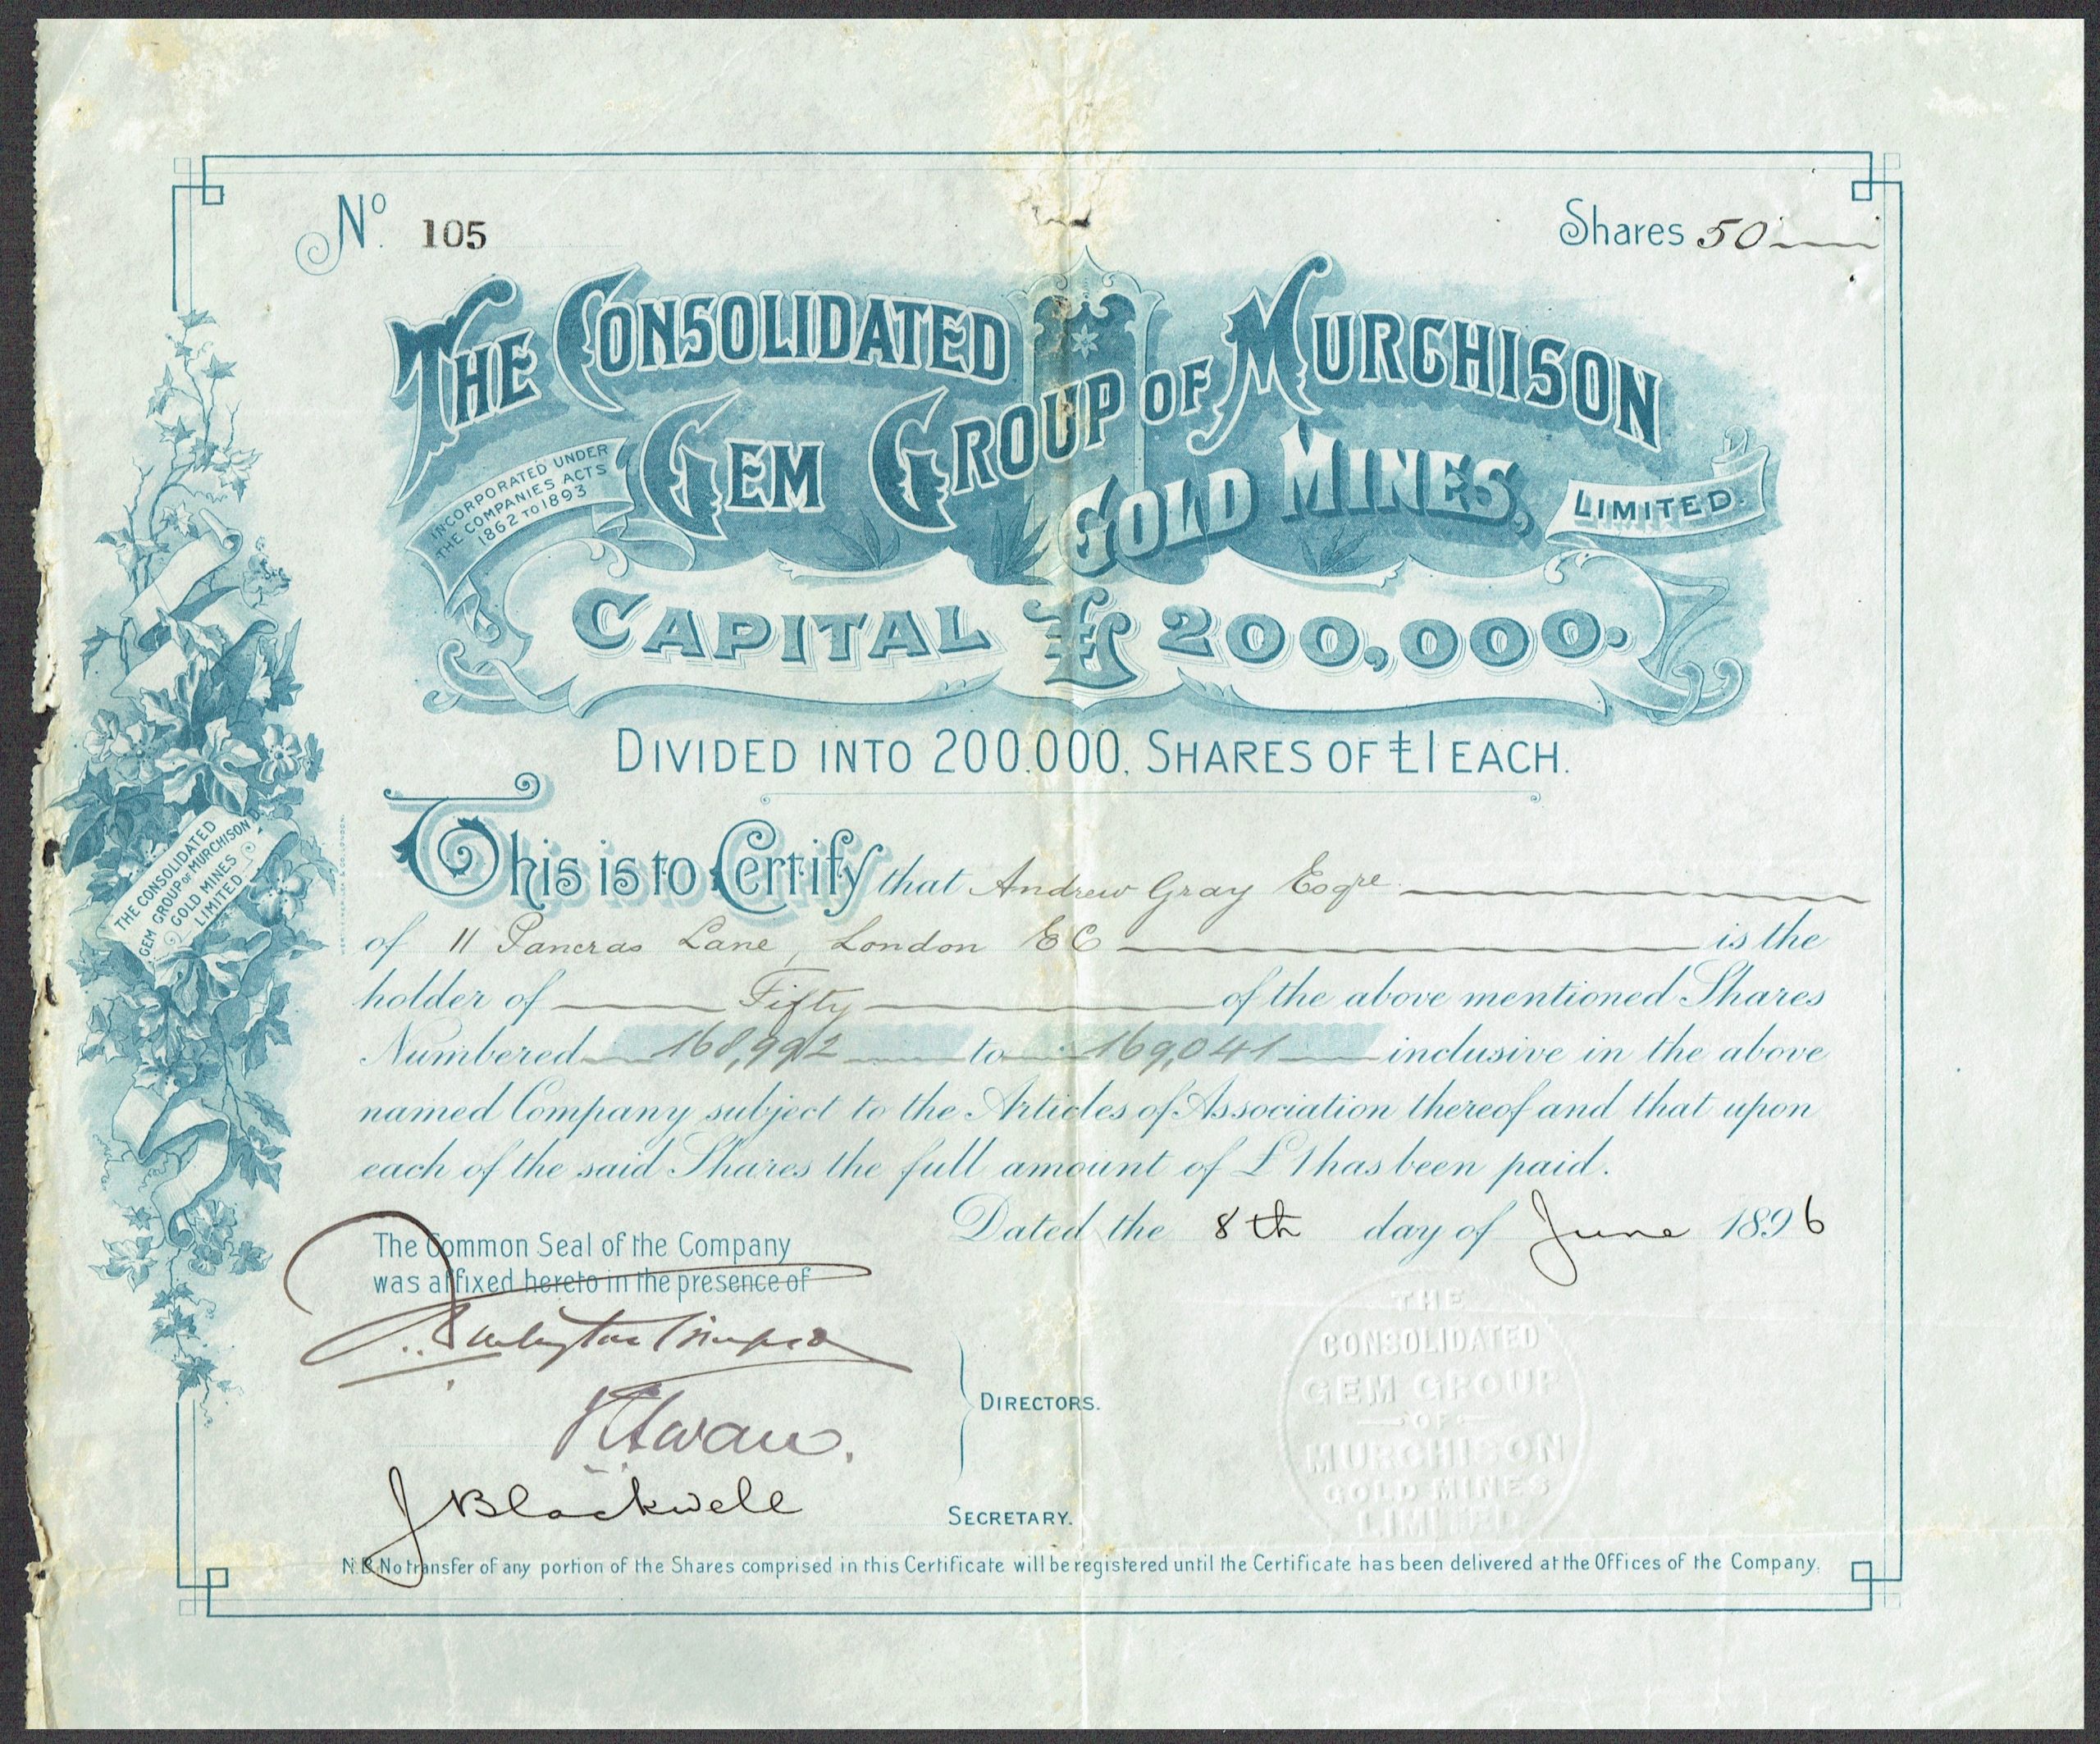 Nº. 105
Shares 50
THE CONSOLIDATED
GEM GROUP OF MURCHISON
GOLD MINES, LIMITED.
INCORPORATED UNDER
THE COMPANIES ACTS
1862 TO 1893
CAPITAL £200,000.
DIVIDED INTO 200.000. SHARES OF £1 EACH.
THE CONSOLIDATED
GEM GROUP OF MURCHISON
GOLD MINES
LIMITED
This is to Certify that Andrew Gray Esqre
of 11 Pancras Lane, London EC is the
holder of Fifty of the above mentioned Shares
Numbered 168,992 to 169,041 inclusive in the above
named Company subject to the Articles of Association thereof and that upon
each of the said Shares the full amount of £1 has been paid.
Dated the 8th day of June 1896
The Common Seal of the Company
was affixed hereto in the presence of
DIRECTORS.
J Blackwell
SECRETARY.
THE
CONSOLIDATED
GEM GROUP
OF
MURCHISON
GOLD MINES
LIMITED
N.B. No transfer of any portion of the Shares comprised in this Certificate will be registered until the Certificate has been delivered at the Offices of the Company.